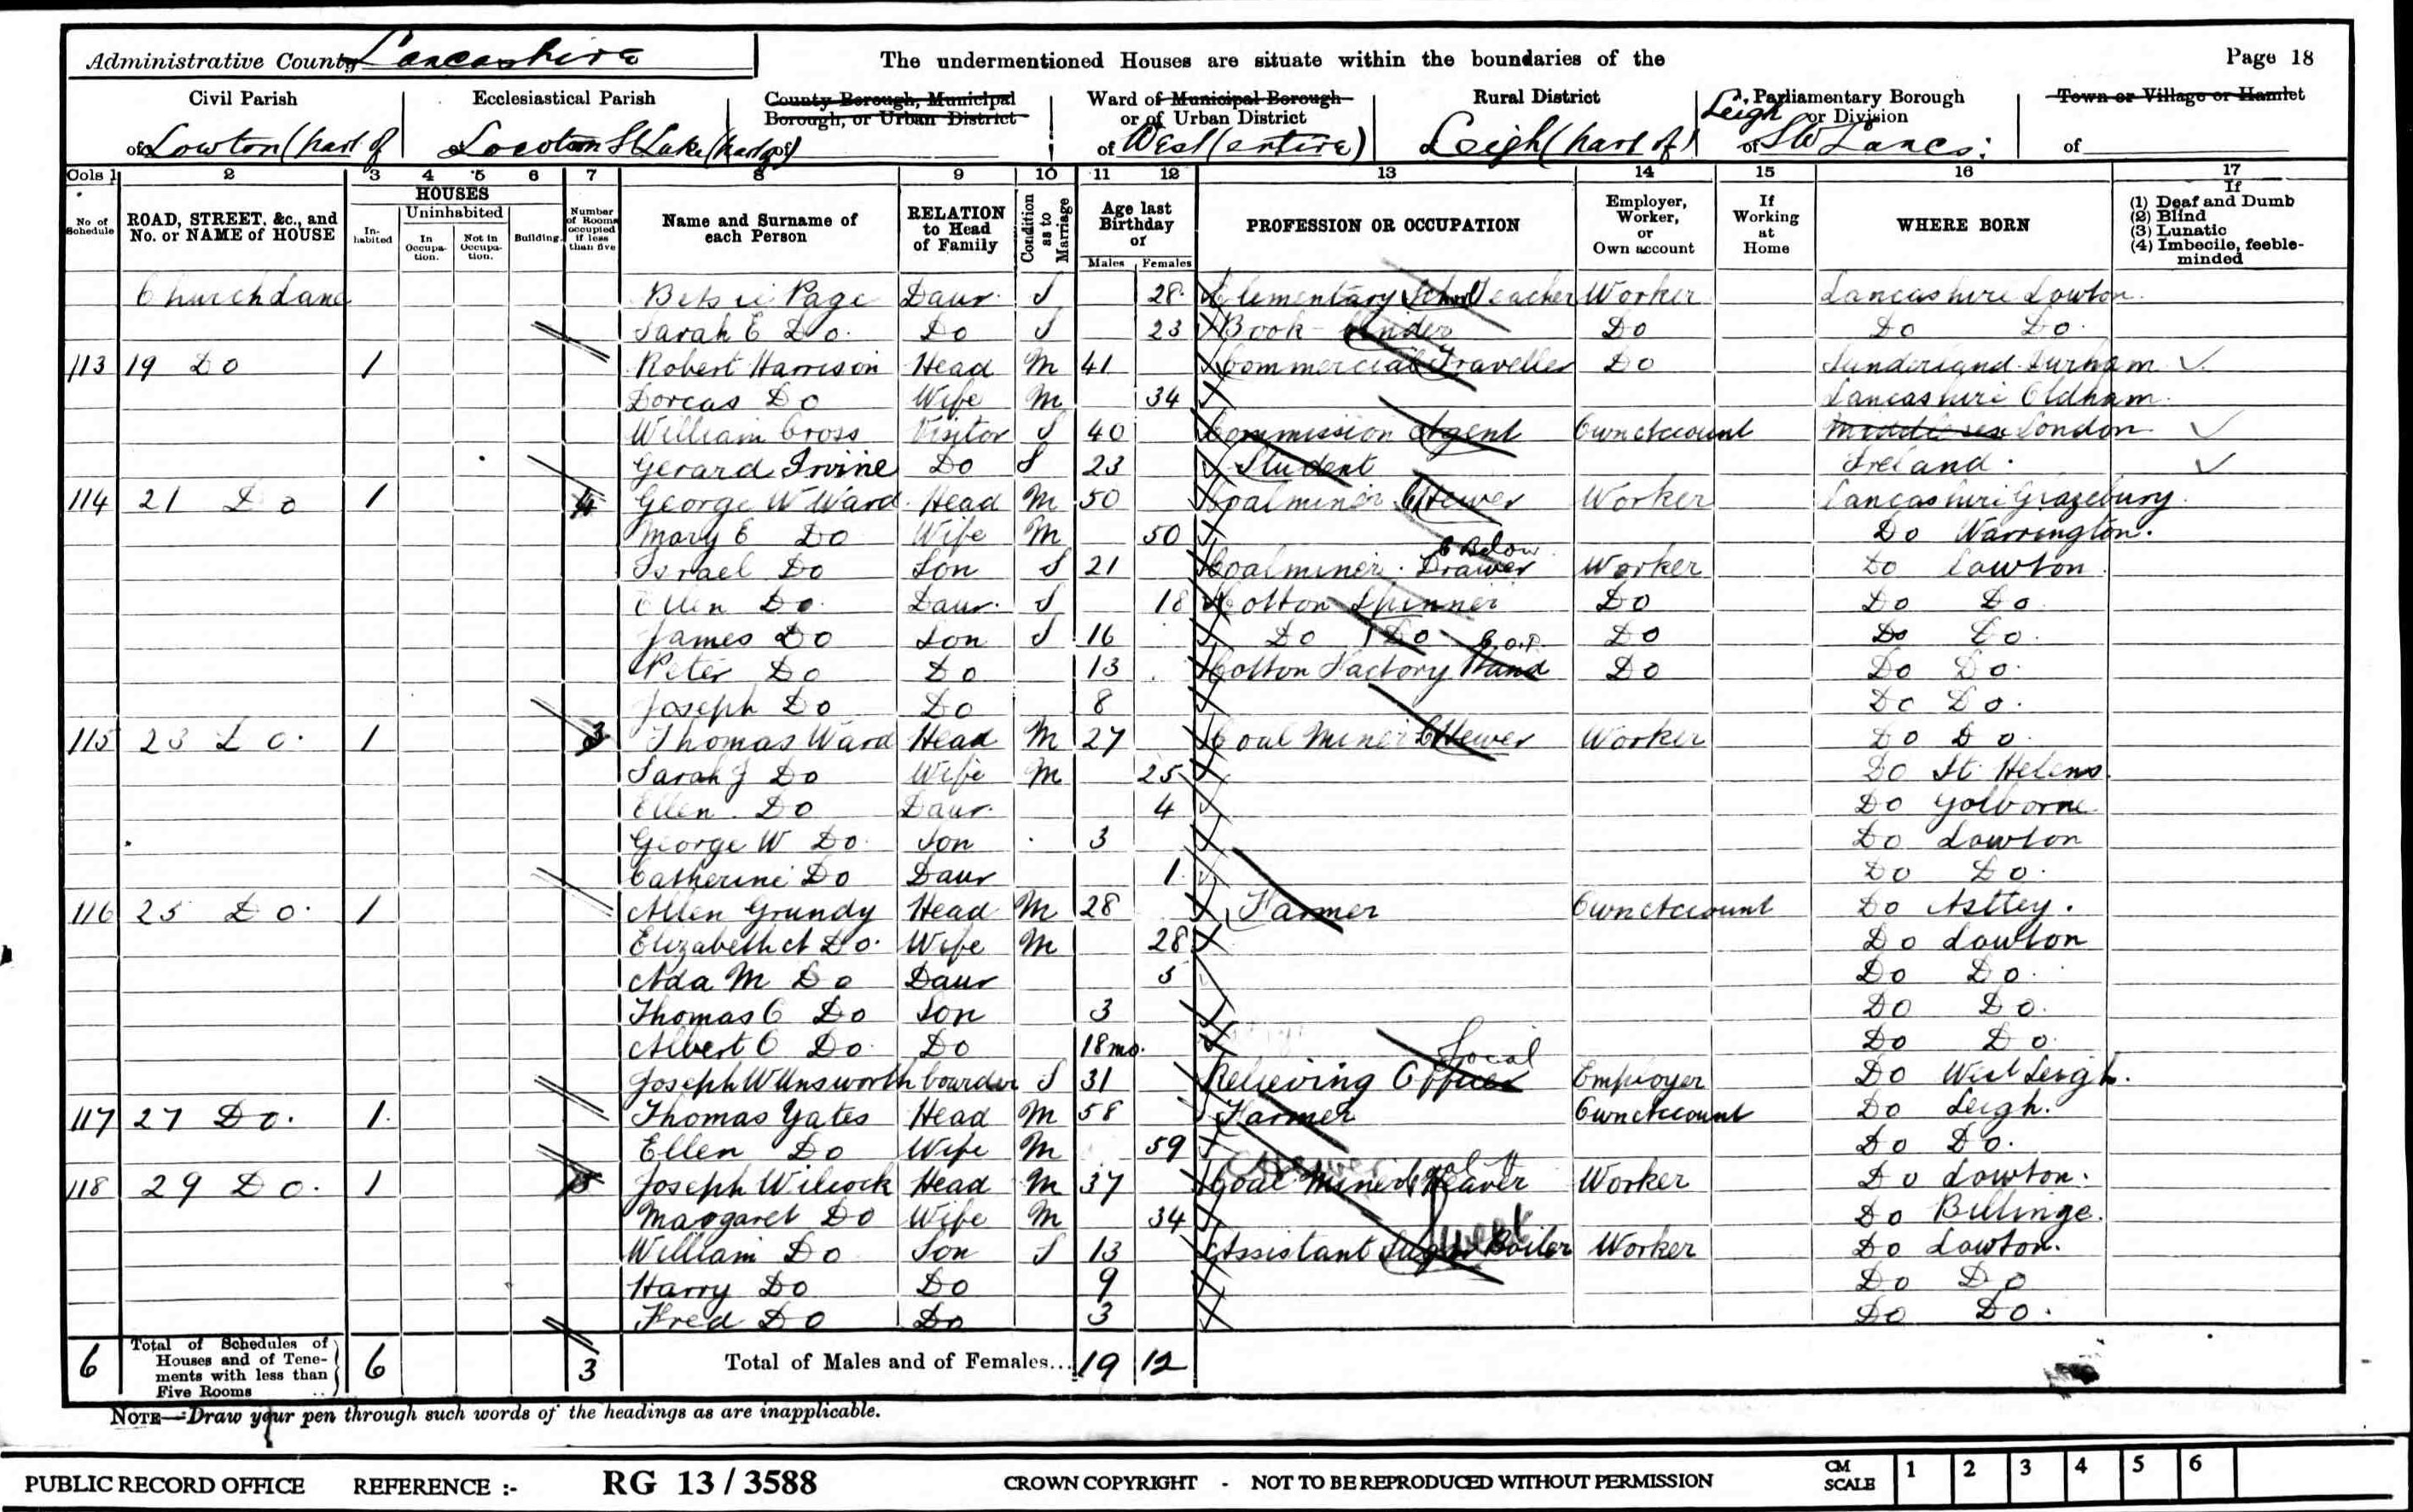 Administrative County Lancashire The undermentioned Houses are situate within the boundaries of the Page 18
Civil Parish Ecclesiastical Parish County Borough, Municipal Borough, or Urban District Ward of Municipal Borough or of Urban District Rural District Parliamentary Borough or Division Town or Village or Hamlet
of Lowton (part of Lowton St Luke (part of) of West (entire) Leigh (part of) Leigh of SW Lancs: of
Cols 1 2 3 4 5 6 7 8 9 10 11 12 13 14 15 16 17
No. of Schedule ROAD, STREET, &c., and No. or NAME of HOUSE HOUSES Inhabited Uninhabited In Occupation. Not in Occupation. Building. Number of Rooms occupied if less than five Name and Surname of each Person RELATION to Head of Family Condition as to Marriage Age last Birthday of Males Females PROFESSION OR OCCUPATION Employer, Worker, or Own account If Working at Home WHERE BORN If (1) Deaf and Dumb (2) Blind (3) Lunatic (4) Imbecile, feeble-minded
Church Lane Betsie Page Daur. S 28 Elementary School Teacher Worker Lancashire Lowton.
Sarah E Do. Do S 23 Book-Binder Do Do Do.
113 19 Do 1 Robert Harrison Head M 41 Commercial Traveller Do Sunderland Durham
Dorcas Do Wife M 34 Lancashire Oldham.
William Cross Visitor S 40 Commission Agent Own Account Middlesex London
Gerard Irvine Do S 23 Student Ireland.
114 21 Do 1 4 George W Ward Head M 50 Coalminer Hewer Worker Lancashire Glazebury.
Mary E Do Wife M 50 Do Warrington.
Israel Do Son S 21 Coalminer. Drawer Below Worker Do Lowton.
Ellen Do. Daur. S 18 Cotton Spinner Do Do Do
James Do Son S 16 Do Do Do Do Do.
Peter Do Do 13 Cotton Factory Hand Do Do Do.
Joseph Do Do 8 Do Do.
115 23 Do. 1 3 Thomas Ward Head M 27 Coal Miner Hewer Worker Do Do.
Sarah J Do Wife M 25 Do St Helens.
Ellen Do Daur. 4 Do Golborne
George W Do Son 3 Do Lowton
Catherine Do Daur 1 Do Do.
116 25 Do. 1 Allen Grundy Head M 28 Farmer Own Account Do Astley.
Elizabeth A Do. Wife M 28 Do Lowton
Ada M Do Daur 5 Do Do.
Thomas C Do Son 3 Do Do.
Albert C Do. Do 18 mo. Do Do.
Joseph W Unsworth boarder S 31 Relieving Officer Local Employer Do West Leigh.
117 27 Do. 1. Thomas Yates Head M 58 Farmer Own Account Do Leigh.
Ellen Do Wife M 59 Do Do.
118 29 Do. 1 Joseph Wilcock Head M 37 Coal Miner Heaver Worker Do Lowton.
Margaret Do Wife M 34 Do Billinge.
William Do Son S 13 Assistant Sugar Boiler Worker Do Lowton.
Harry Do Do 9 Do Do
Fred Do Do 3 Do Do.
6 Total of Schedules of Houses and of Tenements with less than Five Rooms 6 3 Total of Males and of Females... 19 12
NOTE—Draw your pen through such words of the headings as are inapplicable.
PUBLIC RECORD OFFICE REFERENCE :- RG 13 / 3588 CROWN COPYRIGHT - NOT TO BE REPRODUCED WITHOUT PERMISSION CM SCALE 1 2 3 4 5 6